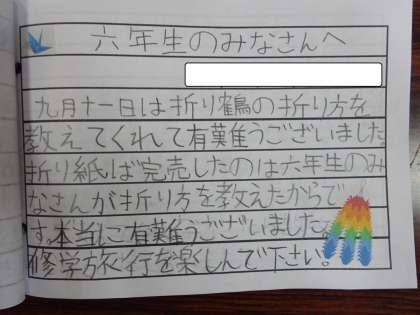 六年生のみなさんへ
九月十一日は折り鶴の折り方を
教えてくれて有難うございました。
折り紙ば完売したのは六年生のみ
なさんが折り方を教えたからで
す。本当に有難うございました。
修学旅行を楽しんで下さい。